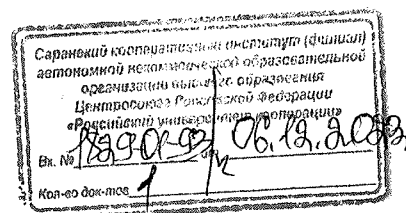 Саранский кооперативный институт (филиал)
автономной некоммерческой образовательной
организации высшего образования
Центросоюза Российской Федерации
«Российский университет кооперации»
Вх. № 06.12.2023
Кол-во док-тов 1